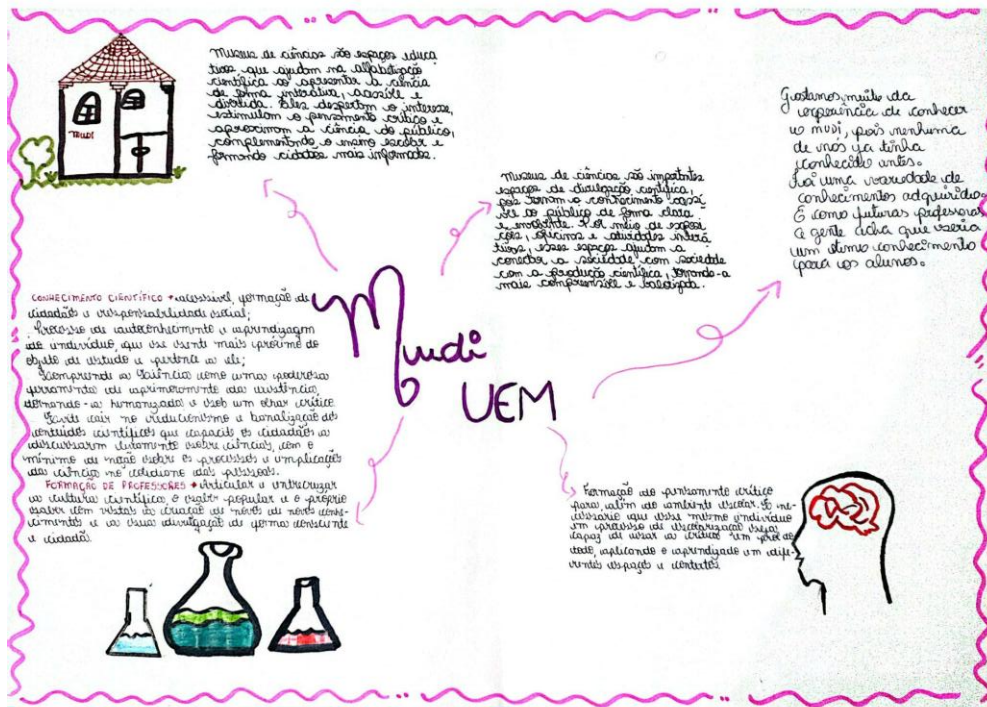 Museus de ciências são espaços educa
tivos, que ajudam na alfabetização
científica ao apresentar a ciência
de forma interativa, acessível e
divertida. Eles despertam o interesse,
estimulam o pensamento crítico e
aproximam a ciência do público,
complementando o ensino escolar e
formando cidadãos mais informados.
MUDI
Museus de ciências são importantes
espaços de divulgação científica,
pois tornam o conhecimento acessí
vel ao público de forma clara
e envolvente. Por meio de exposi
ções, oficinas e atividades intera
tivas, esses espaços ajudam a
conectar a sociedade com sociedade
com a produção científica, tornando-a
mais compreensível e
Gostamos muito da
experiência de conhecer
o mudi, pois nenhuma
de nós já tinha
conhecido antes.
Foi uma variedade de
conhecimentos adquirido.
E como futuras professoras
a gente acha que seria
um ótimo conhecimento
para os alunos.
Mudi
UEM
CONHECIMENTO CIENTÍFICO → acessível, formação de
cidadãos e responsabilidade social;
Processo de autoconhecimento e aprendizagem
do indivíduo, que se sente mais próximo do
objeto de estudo e pertence a ele;
Compreende a Ciência como uma poderosa
ferramenta de aprimoramento da existência,
tornando-a humanizada e sob um olhar crítico.
Evite cair no reducionismo e banalização dos
conteúdos científicos que capacite os cidadãos a
discursarem sobre ciências, com o
mínimo de noção sobre os processos e implicações
da ciência no cotidiano das pessoas.
FORMAÇÃO DE PROFESSORES → Articular e entrecruzar
a cultura científica, o saber popular e o próprio
saber com vistas a criação de novos de novos conhe-
cimentos e a sua divulgação de forma consciente
e cidadã.
Formação do pensamento crítico
para além do ambiente escolar. É ne-
cessário que esse mesmo indivíduo
em processo de escolarização seja
capaz de usar a crítica em prol do
todo, aplicando o aprendizado em dife-
rentes espaços e contextos.